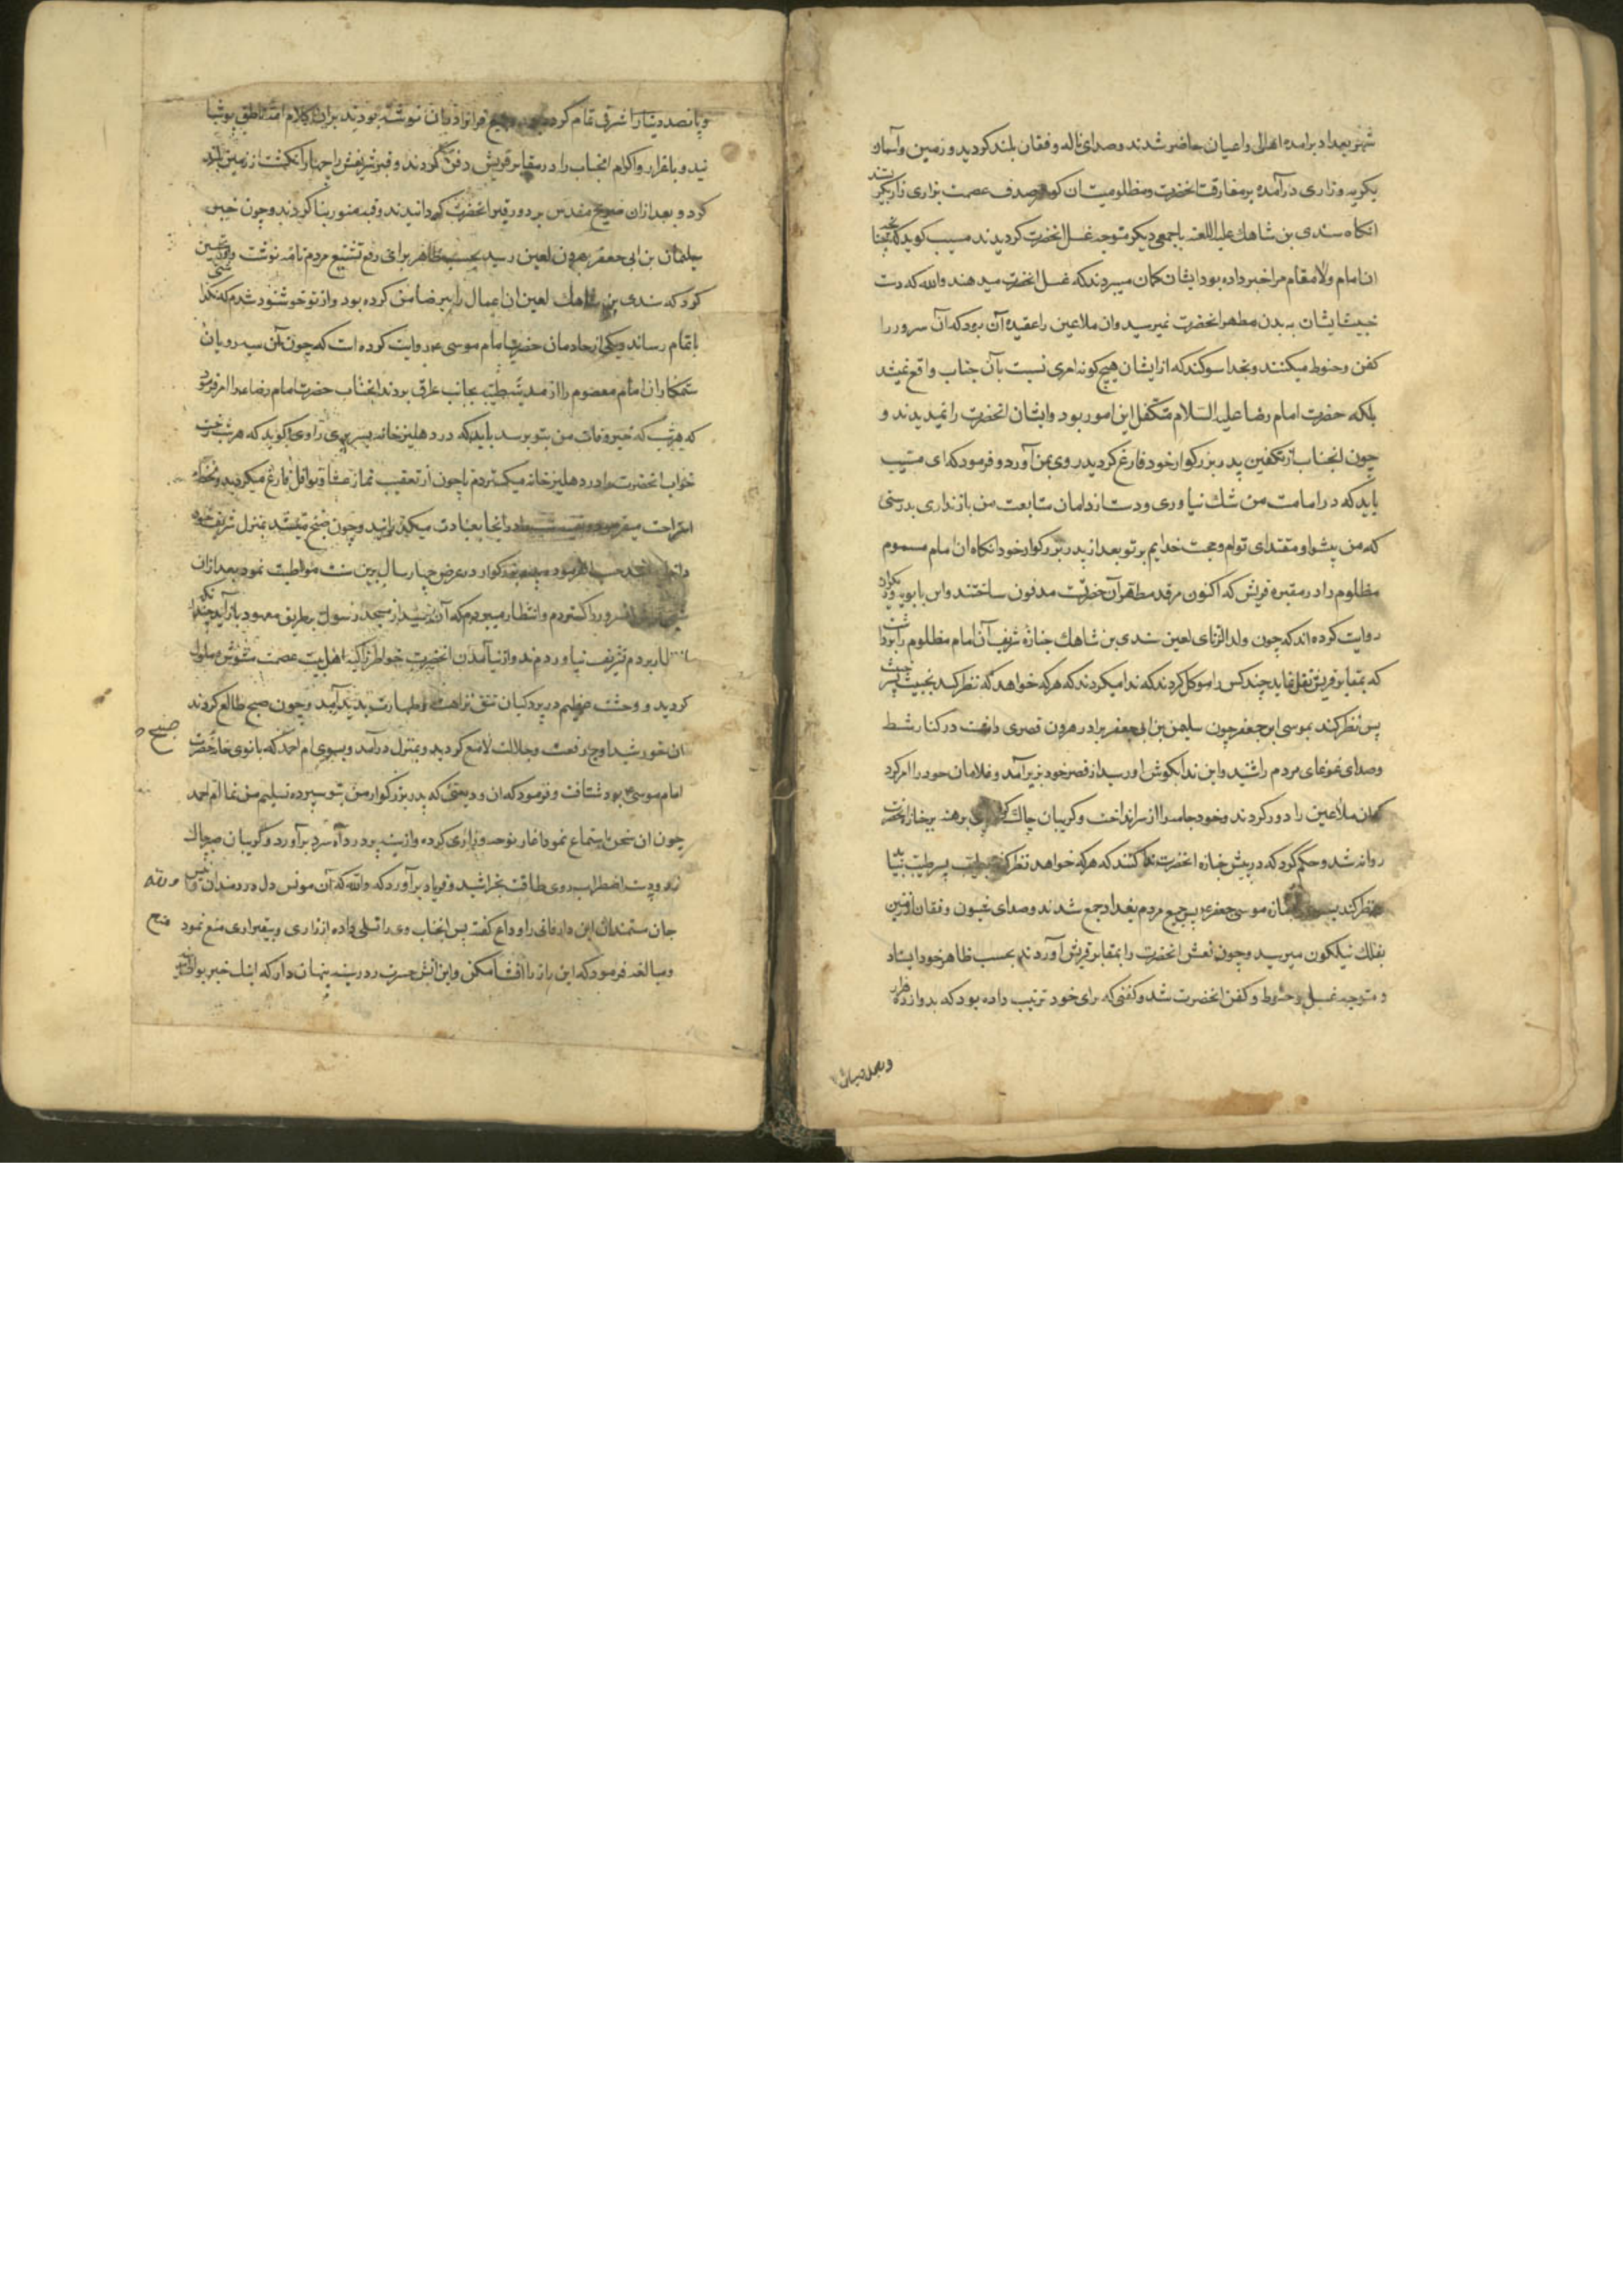 شهر بغداد برامده اهالی واعیان حاضر شدند وصدای ناله وفغان بلند کردید و زمین وآسمان
بکریه وزاری درآمده بر مفارقت انحضرت ومظلومیت ان کوهر صدف عصمت بزاری زار بکریستند
انکاه سندی بن شاهك علیه اللعنه باجمعی دیکر متوجه غسل انحضرت کردیدند مسیب کوید که
ان امام والا مقام مرا خبر داده بود ایشان کمان میبردند که غسل انحضرت میدهند والله که دست
خبیث ایشان به بدن مطهر انحضرت نمیرسید وان ملاعین را عقیده آن بود که آن سرور را
کفن وحنوط میکنند وبخدا سوکند که از ایشان هیچ کونه امری نسبت بآن جناب واقع نمیشد
بلکه حضرت امام رضا علیه السلام متکفل این امور بود وایشان انحضرت را نمیدیدند و
چون انجناب از تکفین پدر بزرکوار خود فارغ کردید روی بمن آورد و فرمود که ای مسیب
باید که در امامت من شك نیاوری ودست از دامان متابعت من بازنداری بدرستی
که من پیشوا و مقتدای توام وحجت خدایم بر تو بعد از پدر بزرکوار خود انکاه ان امام مسموم
مظلوم را در مقبره قریش که اکنون مرقد مطهر آن حضرت مدفون ساختند وابن بابویه
روایت کرده اند که چون ولد الزنای لعین سندی بن شاهك جنازه شریف آن امام مظلوم را
که بمقابر قریش نقل نماید چند کس را موکل کردند که ندا میکردند که هرکه خواهد که نظر کند بخبیث پسر خبیث
پس نظر کند بموسی ابن جعفر چون سلیمن بن ابی جعفر برادر هرون قصری داشت در کنار شط
وصدای غوغای مردم را شنید واین ندا بکوش او رسید از قصر خود بزیر آمد وغلامان خود را امر کرد
که ان ملاعین را دور کردند وخود جامه را از سر انداخت وکریبان چاك پای برهنه بر جنازه انحضرت
روانه شد وحکم کرد که در پیش جنازه انحضرت ندا کنند که هرکه خواهد نظر کند بطیب پسر طیب بیاید
نظر کند بسوی جنازه موسی جعفر پس جمیع مردم بغداد جمع شدند وصدای شیون وفغان از زمین
بفلك نیلکون میرسید وچون نعش انحضرت را بمقابر قریش آوردند بحسب ظاهر خود ایستاد
و متوجه غسل وحنوط وکفن انحضرت شد وکفنی که برای خود ترتیب داده بود که بدو هزار

وپانصد دینار اشرفی تمام کرده بود وجمیع قرانرا در ان نوشته بودند بران کلام الله ناطق پوشا
نید و باعزاز واکرام انجناب را در مقابر قریش دفن کردند وقبر شریفش را چهار انکشت از زمین بلند
کرد و بعد ازان ضریح مقدس بر دور قبر انحضرت کردانیدند وقبه منور بنا کردند وچون خبر
سلیمان بن ابی جعفر بهرون لعین رسید بحسب ظاهر برای رفع تشنیع مردم نامه نوشت و
کرد که سندی بن شاهك لعین ان اعمال را بی رضا من کرده بود واز تو خوشنود شدم که نکذاشتی
باتمام رساند ویکی از خادمان حضرت امام موسی ع روایت کرده است که چون آن سیه رویان
ستمکار ان امام معصوم را از مدینه طیبه بجانب عراق بردند انجناب حضرت امام رضا ع را امر فرمود
که هر شب که خبر وفات من بتو برسد باید که در دهلیز خانه بسر بری راوی کوید که هر شب رخت
خواب انحضرت را در دهلیز خانه میکستردم تا چون از تعقیب نماز عشا ونوافل فارغ میکردید
استراحت میفرمود در انجا بعبادت میکذرانید وچون صبح میشد بمنزل شریف خود
داخل بزرکوار در عرض چهار سال برین سنت مواظبت نمود بعد ازان
سرور را کستردم وانتظار میبردم که آن خورشید از مسجد رسول بطریق معهود باز آید
بردم تشریف نیاوردند واز نیامدن انحضرت خواطر زاکیه اهل بیت عصمت مشوش وملول
کردید و وحشت عظیم در پردکیان تتق نزاهت وطهارت پدید آمد وچون صبح طالع کردند
ان خورشید اوج رفعت وجلالت لامع کردید وبمنزل درآمد وبسوی ام احمد که بانوی خانه حضرت
امام موسی بود شتافت وفرمود که ان ودیعتی که پدر بزرکوار من بتو سپرده تسلیم من نما ام احمد
چون ان سخن استماع نمود اغاز نوحه وزاری کرده واز سینه پر درد آه سرد برآورد وگریبان صبر چاك
زد وبدست اضطراب روی طاقت بخراشید وفریاد برآورد که والله که آن مونس دل دردمندان
جان مستمندان این دار فانی را وداع کفت پس انجناب وی را تسلی داده از زاری وبیقراری منع نمود
ومبالغه فرمود که این راز را افشا مکن واین آتش حسرت را در سینه پنهان دار که اینك خبر بوالی